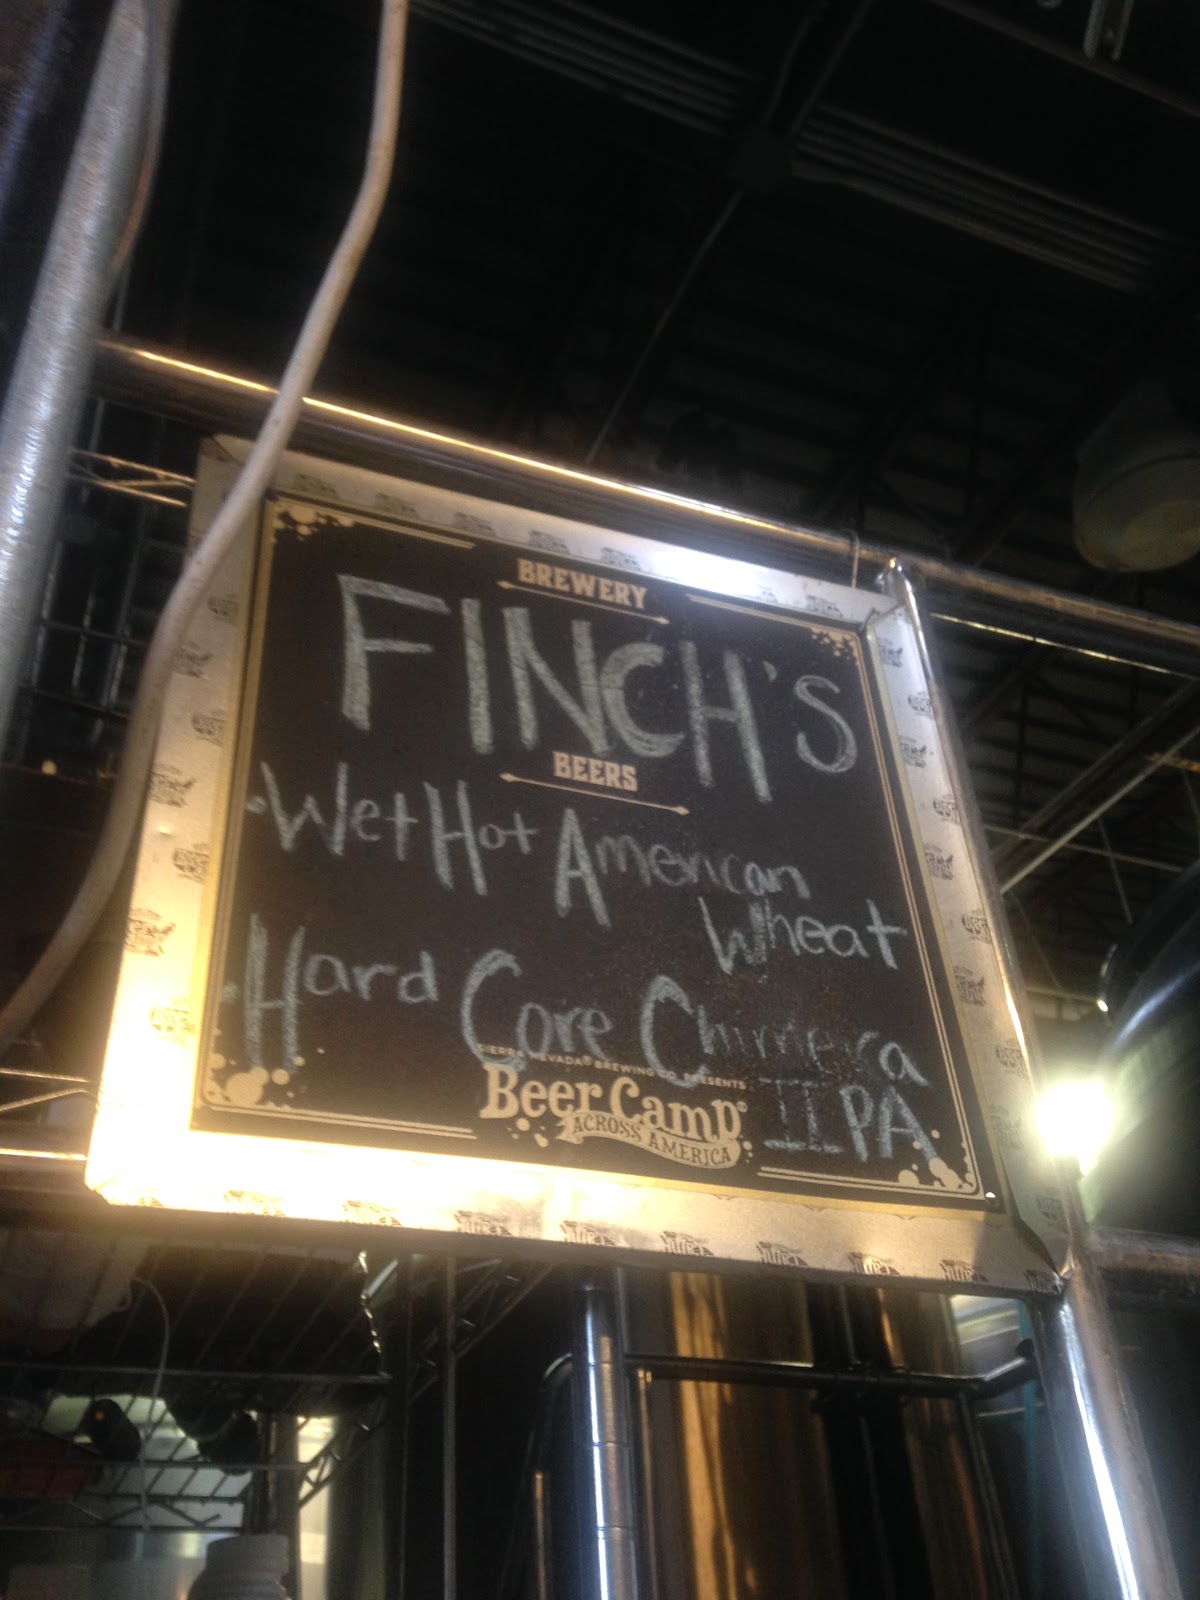 BREWERY
FINCH'S
BEERS
·Wet Hot American
Wheat
·Hard Core Chimera
SIERRA NEVADA® BREWING CO. PRESENTS
Beer Camp®
IIPA
ACROSS AMERICA